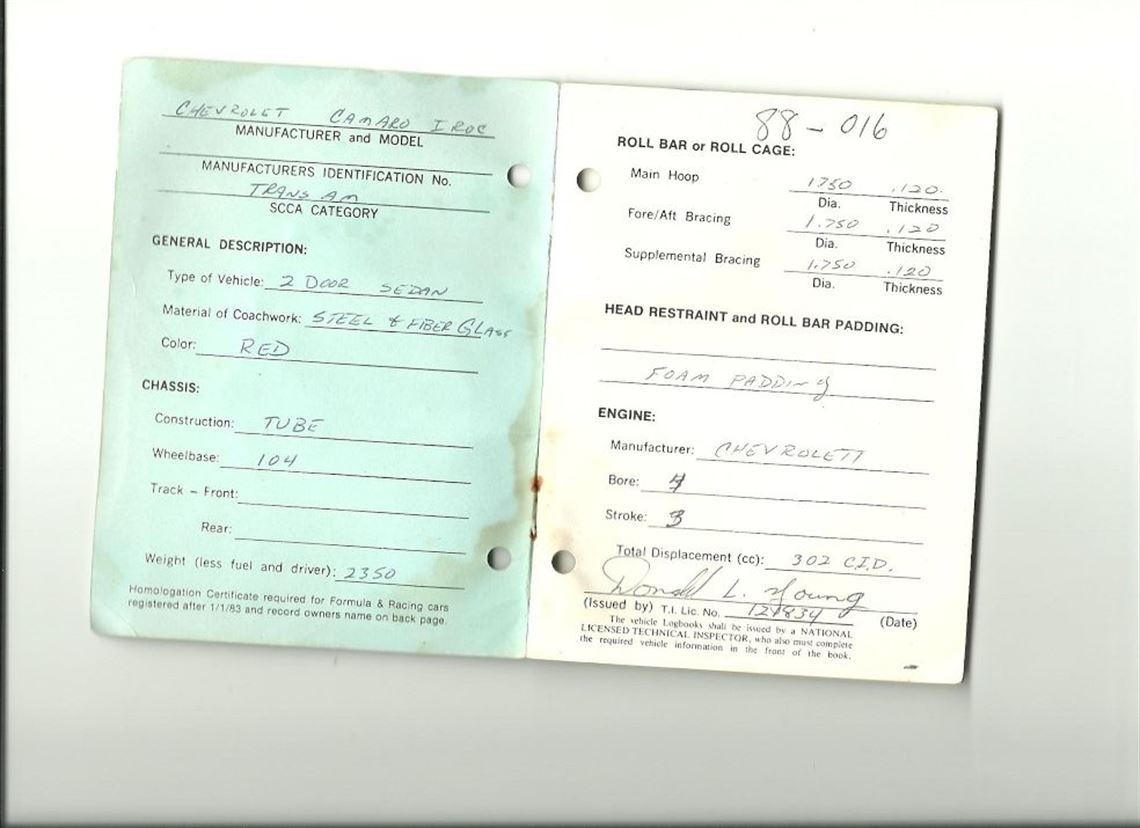 CHEVROLET CAMARO IROC
MANUFACTURER and MODEL
MANUFACTURERS IDENTIFICATION No.
TRANS AM
SCCA CATEGORY
GENERAL DESCRIPTION:
Type of Vehicle: 2 DOOR SEDAN
Material of Coachwork: STEEL & FIBERGLASS
Color: RED
CHASSIS:
Construction: TUBE
Wheelbase: 104
Track – Front:
Rear:
Weight (less fuel and driver): 2350
Homologation Certificate required for Formula & Racing cars
registered after 1/1/83 and record owners name on back page.
88-016
ROLL BAR or ROLL CAGE:
Main Hoop 1750 .120.
Dia. Thickness
Fore/Aft Bracing 1.750 .120
Dia. Thickness
Supplemental Bracing 1.750 .120
Dia. Thickness
HEAD RESTRAINT and ROLL BAR PADDING:
FOAM PADDING
ENGINE:
Manufacturer: CHEVROLETT
Bore: 4
Stroke: 3
Total Displacement (cc): 302 C.I.D.
Donald L. Young
(Issued by) T.I. Lic. No. (Date)
The vehicle Logbooks shall be issued by a NATIONAL
LICENSED TECHNICAL INSPECTOR, who also must complete
the required vehicle information in the front of the book.